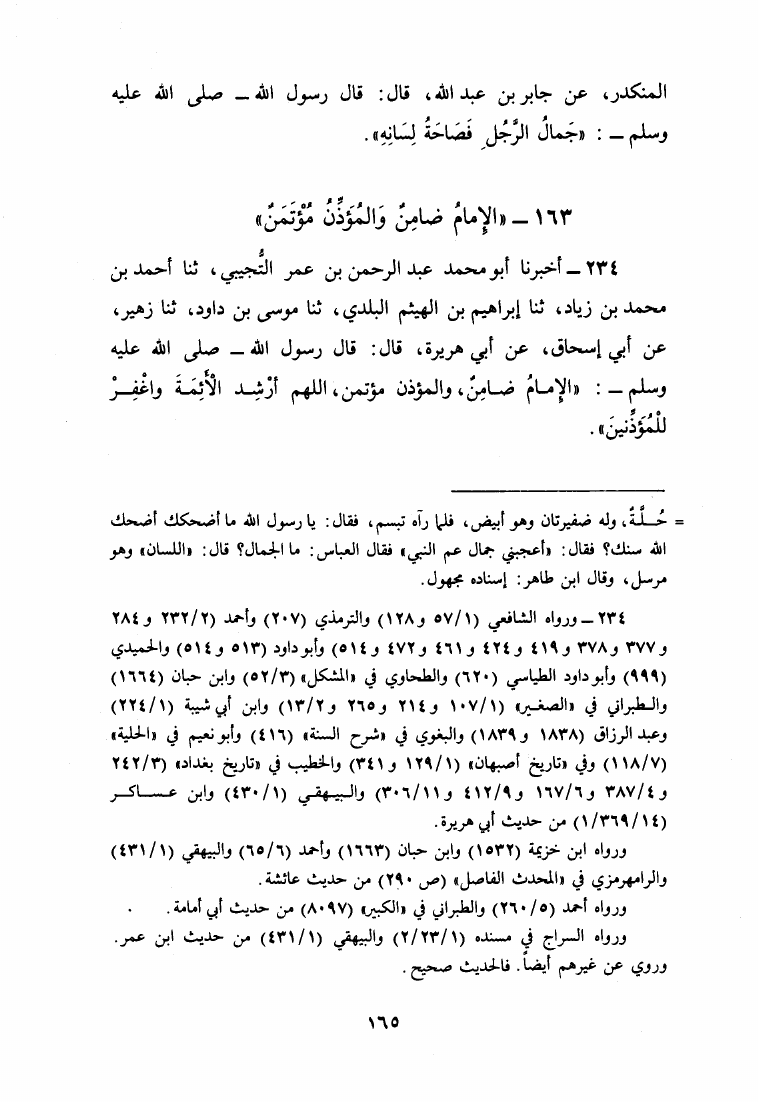 المنكدر، عن جابر بن عبد الله، قال: قال رسول الله ــ صلى الله عليه
وسلم ــ : «جَمالُ الرَّجُلِ فَصَاحَةُ لِسَانِهِ».
١٦٣ ــ «الإِمامُ ضامِنٌ وَالمُؤَذِّنُ مُؤْتَمَنٌ»
٢٣٤ ــ أخبرنا أبو محمد عبد الرحمن بن عمر التُّجيبي، ثنا أحمد بن
محمد بن زياد، ثنا إبراهيم بن الهيثم البلدي، ثنا موسى بن داود، ثنا زهير،
عن أبي إسحاق، عن أبي هريرة، قال: قال رسول الله ــ صلى الله عليه
وسلم ــ : «الإِمامُ ضامِنٌ، والمؤذن مؤتمن، اللهم أرْشِد الْأَئِمَةَ واغْفِرْ
للْمُؤَذِّنينَ».
= حُلَّةٌ، وله ضفيرتان وهو أبيض، فلما رآه تبسم، فقال: يا رسول الله ما أضحكك أضحك
الله سنك؟ فقال: «أعجبني جمال عم النبي» فقال العباس: ما الجمال؟ قال: «اللسان» وهو
مرسل، وقال ابن طاهر: إسناده مجهول.
٢٣٤ ــ ورواه الشافعي (٥٧/١ و١٢٨) والترمذي (٢٠٧) وأحمد (٢٣٢/٢ و ٢٨٤
و ٣٧٧ و ٣٧٨ و ٤١٩ و ٤٢٤ و ٤٦١ و ٤٧٢ و ٥١٤) وأبو داود (٥١٣ و ٥١٤) والحميدي
(٩٩٩) وأبو داود الطيالسي (٦٢٠) والطحاوي في «المشكل» (٥٢/٣) وابن حبان (١٦٦٤)
والطبراني في «الصغير» (١٠٧/١ و ٢١٤ و ٢٦٥ و ١٣/٢) وابن أبي شيبة (٢٢٤/١)
وعبد الرزاق (١٨٣٨ و ١٨٣٩) والبغوي في «شرح السنة» (٤١٦) وأبو نعيم في «الحلية»
(١١٨/٧) وفي «تاريخ أصبهان» (١٢٩/١ و ٣٤١) والخطيب في «تاريخ بغداد» (٢٤٢/٣
و ٣٨٧/٤ و ١٦٧/٦ و ٤١٢/٩ و ٣٠٦/١١) والبيهقي (٤٣٠/١) وابن عساكر
(١/٣٦٩/١٤) من حديث أبي هريرة.
ورواه ابن خزيمة (١٥٣٢) وابن حبان (١٦٦٣) وأحمد (٦٥/٦) والبيهقي (٤٣١/١)
والرامهرمزي في «المحدث الفاصل» (ص ٢٩٠) من حديث عائشة.
ورواه أحمد (٢٦٠/٥) والطبراني في «الكبير» (٨٠٩٧) من حديث أبي أمامة.
ورواه السراج في مسنده (٢/٢٣/١) والبيهقي (٤٣١/١) من حديث ابن عمر.
وروي عن غيرهم أيضاً. فالحديث صحيح.
١٦٥